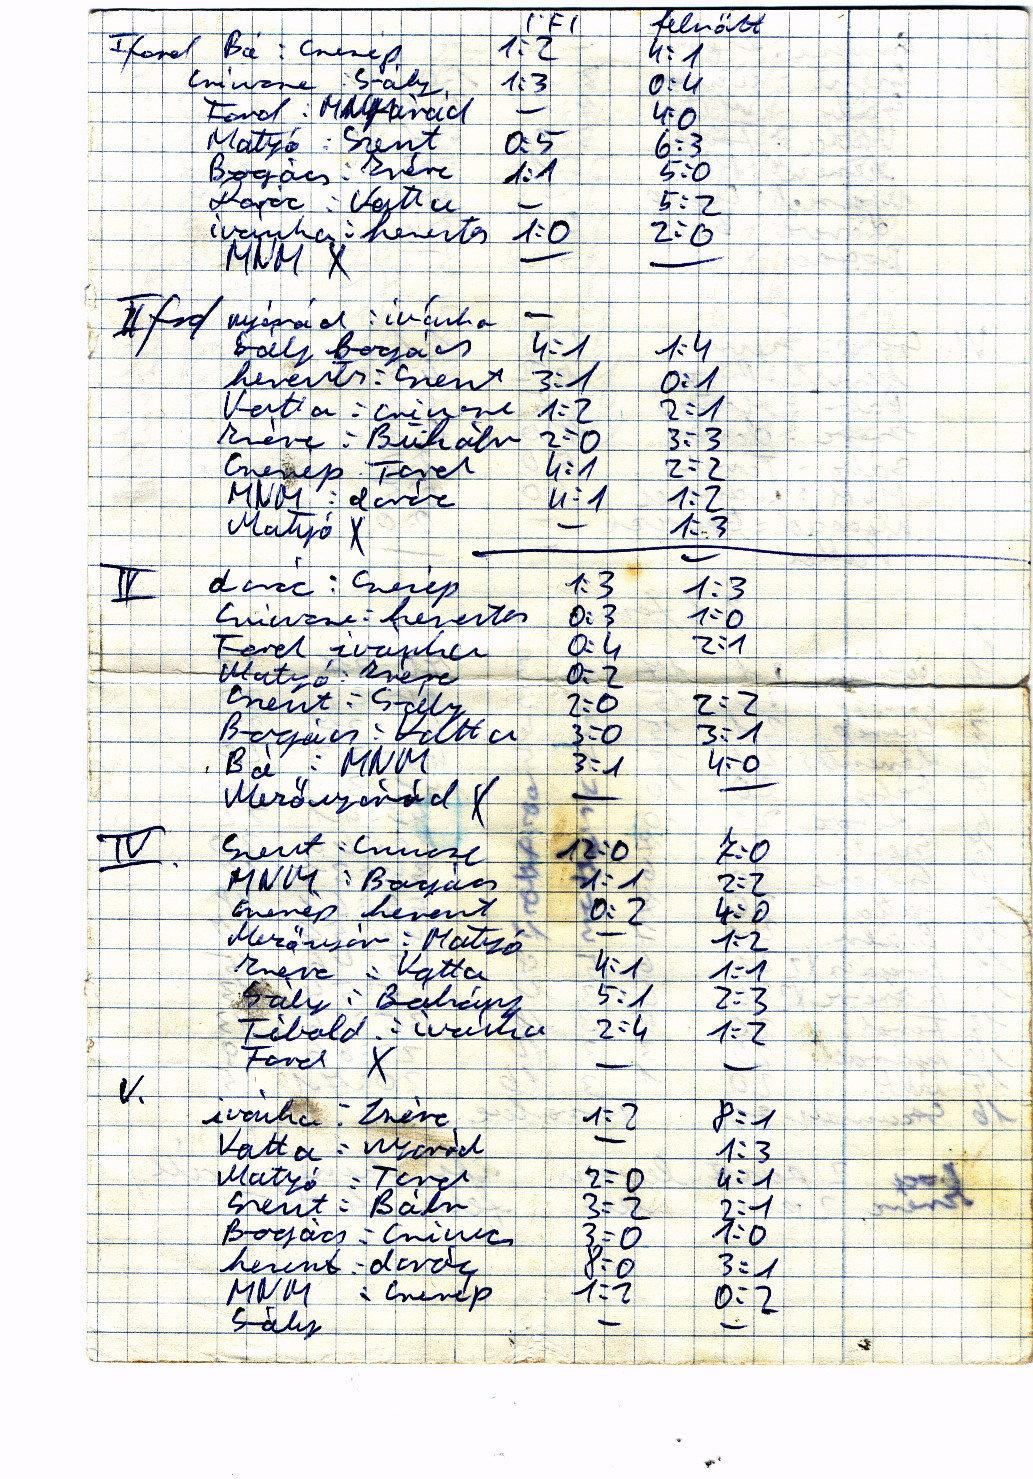 IFI felnőtt
I ford Bá : Cserép 1:2 4:1
Csincse : Sály 1:3 0:4
Tard : nyárád — 4:0
Matyó : Szent 0:5 6:3
Bogács : Eséve 1:1 5:0
Daróc : Vatta — 5:2
ivánka : kerertes 1:0 2:0
MNM X
II ford nyárád : ivánka —
Sály Bogács 4:1 1:4
kerents : Szent 3:1 0:1
Vatta : csincse 1:2 2:1
: Bükábr 2:0 3:3
Cserep Tard 4:1 2:2
MNM : daróc 4:1 1:2
Matyó X — 1:3
IV daróc : Cserép 1:3 1:3
Csincse : 0:3 1:0
Tard ivánka 0:4 2:1
Matyó : 0:2
Szent : Sály 2:0 2:2
Bogács : Vatta 3:0 3:1
Bá : MNM 3:1 4:0
Mezőnyárád X
IV. Szent : Csincse 12:0 7:0
MNM : Bogács 1:1 2:2
Cserép kerent 0:2 4:0
Mezőnyár : Matyó — 1:2
: Vatta 4:1 1:1
Sály : Bábrány 5:1 2:3
Tibold : ivánka 2:4 1:2
Tard X — —
V.
ivánka : 1:2 8:1
Vatta : nyárád — 1:3
Matyó : Tard 2:0 4:1
Szent : Bábr 3:2 2:1
Bogács : Csincs 3:0 1:0
kerent : daróc 8:0 3:1
MNM : Cserép 1:2 0:2
Sály — —